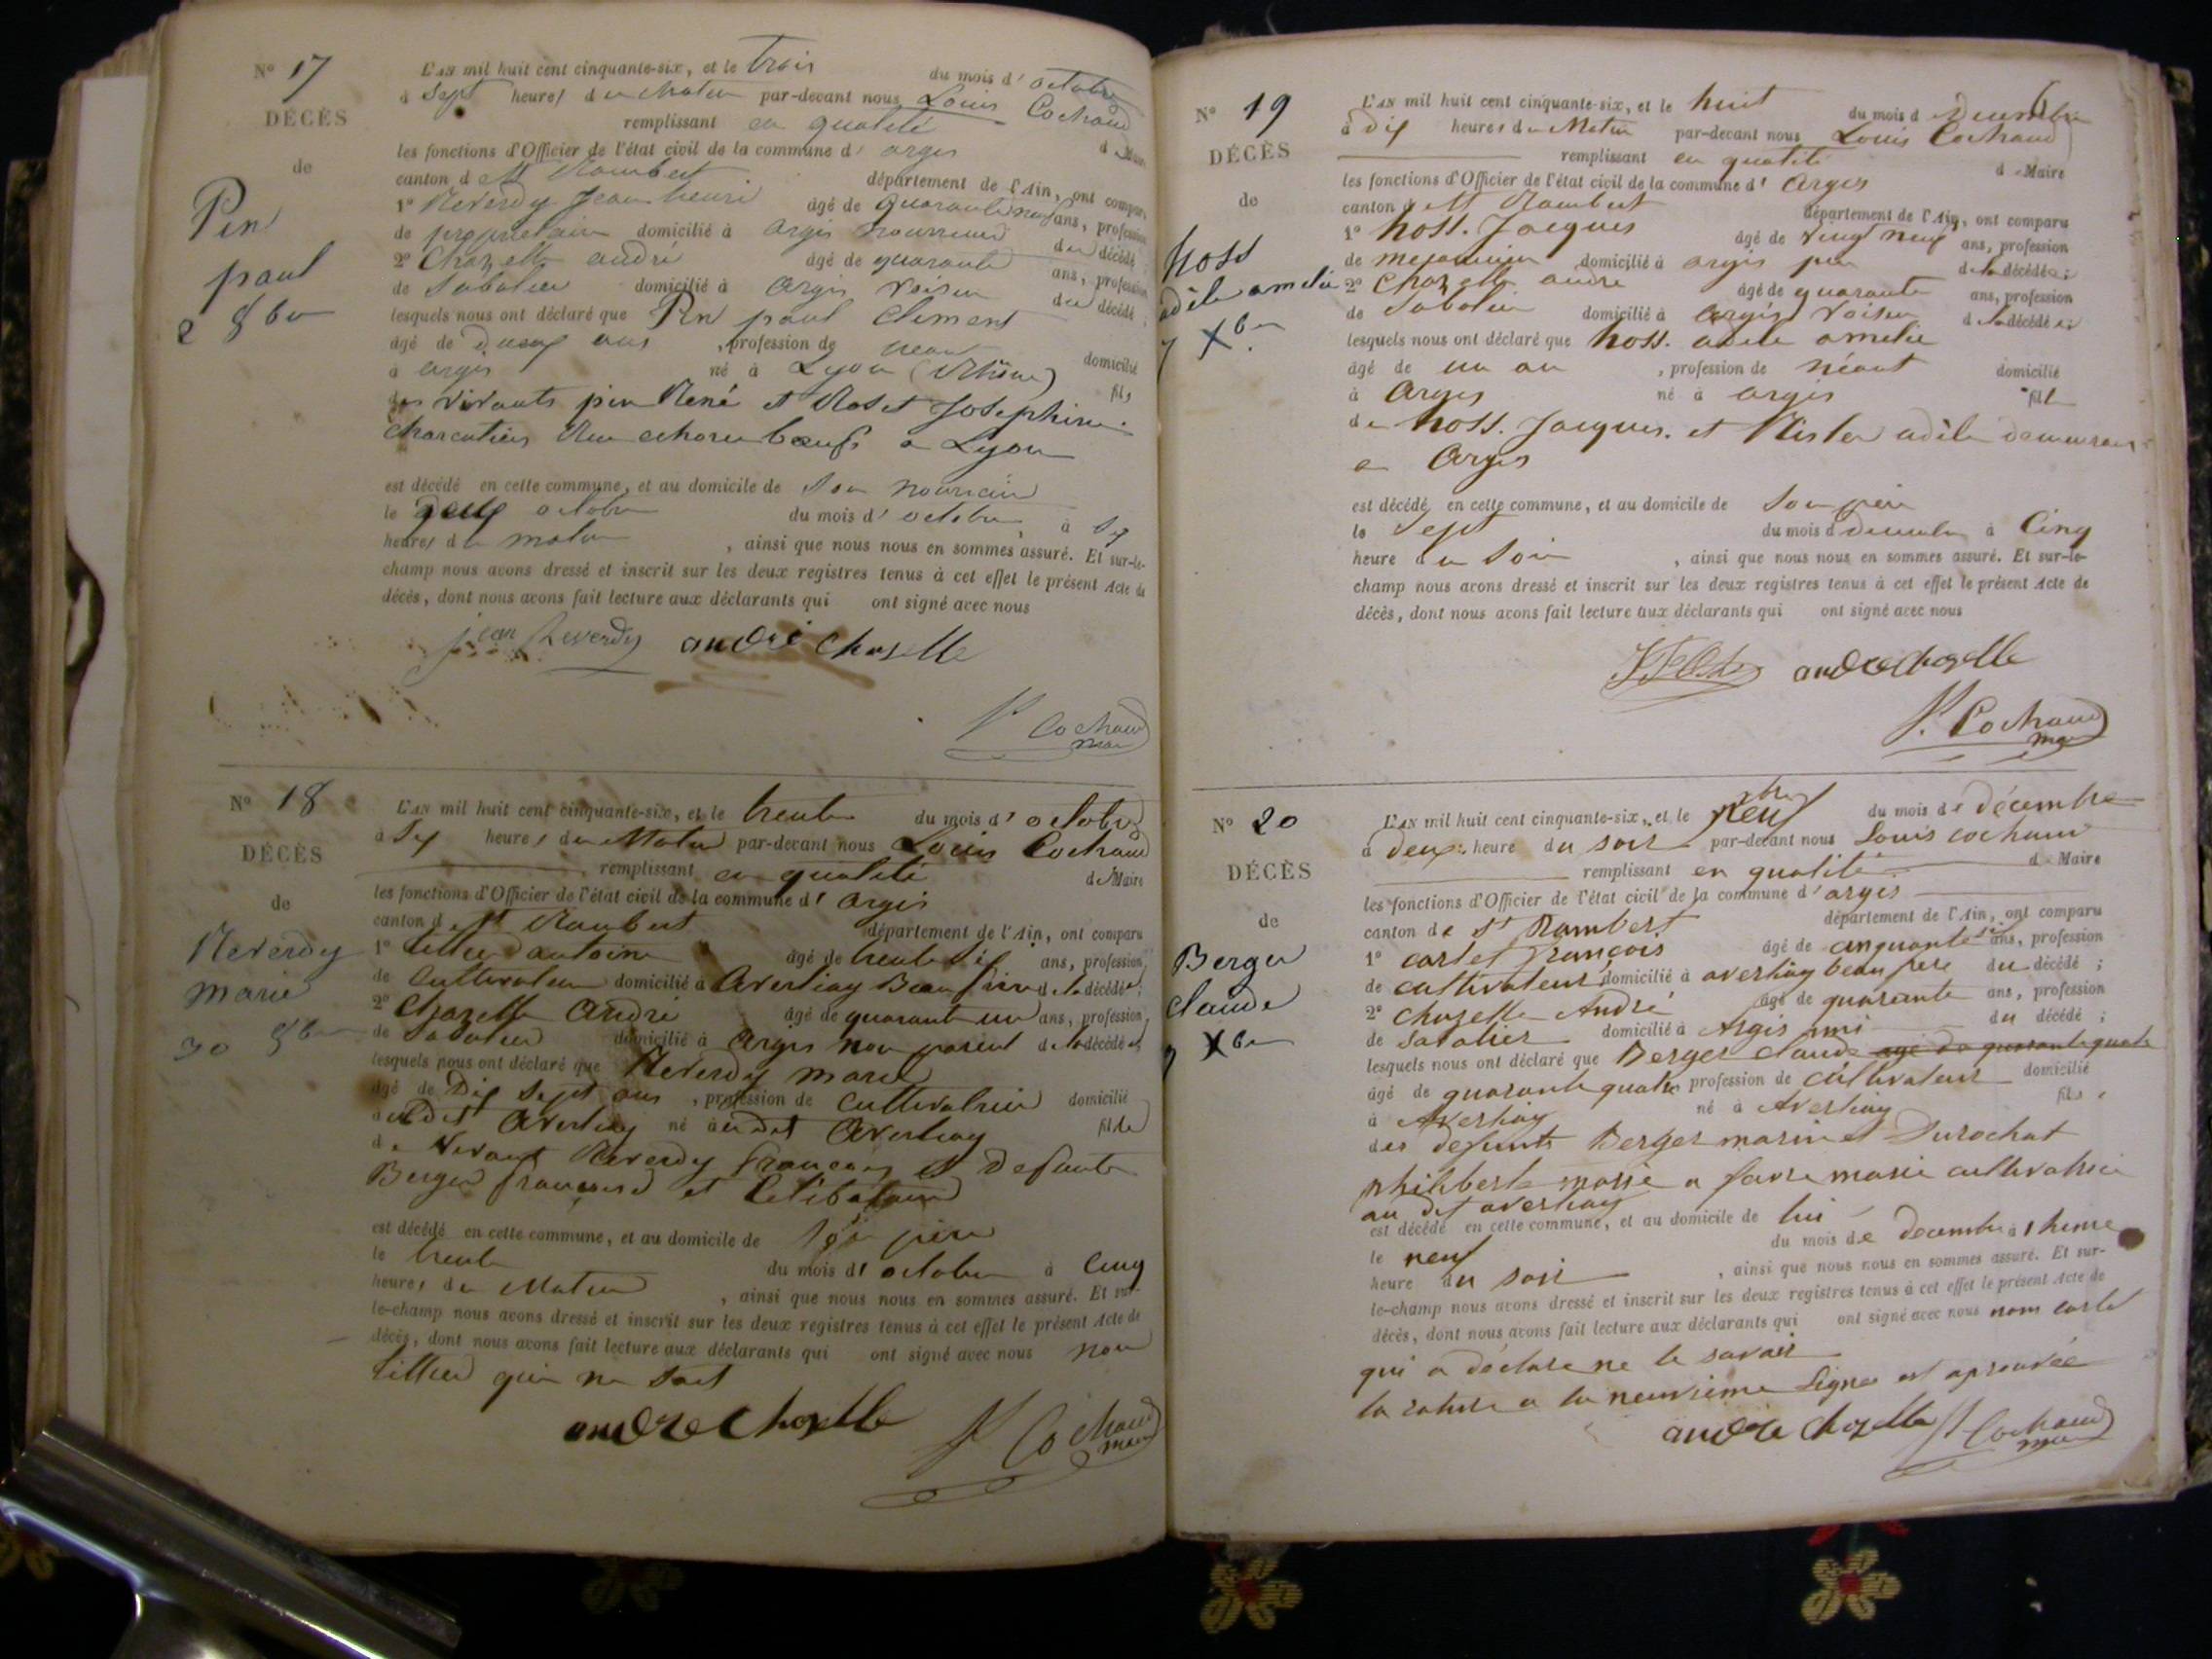 N° 17
DÉCÈS
de
Pin
paul
2 8bre
L'AN mil huit cent cinquante-six, et le trois du mois d'octobre
à sept heures du Matin par-devant nous Louis Cochaud
remplissant en qualité d Maire
les fonctions d'Officier de l'état civil de la commune d' argis
canton de St Rambert département de l'Ain, ont comparu
1° Reverdy Jean henri âgé de quarante neuf ans, profession
de propriétaire domicilié à argis nourricier du décédé
2° Chazelle andré âgé de quarante ans, profession
de Sabotier domicilié à Argis voisin du décédé
lesquels nous ont déclaré que Pin paul Clément
âgé de deux ans, profession de néant domicilié
à argis né à Lyon (Rhône) fils
des vivants pin René et Roset Josephine
charcutiers Rue bœufs a Lyon
est décédé en cette commune, et au domicile de Son nourricier
le deux octobre du mois d'octobre, à Six
heures du matin, ainsi que nous nous en sommes assuré. Et sur-le-
champ nous avons dressé et inscrit sur les deux registres tenus à cet effet le présent Acte de
décès, dont nous avons fait lecture aux déclarants qui ont signé avec nous
jean Reverdy andré chazelle
L Cochaud
maire
N° 18
DÉCÈS
de
Reverdy
Marie
30 8bre
L'AN mil huit cent cinquante-six, et le trente du mois d'octobre
à Six heures du Matin par-devant nous Louis Cochaud
remplissant en qualité de Maire
les fonctions d'Officier de l'état civil de la commune d' Argis
canton de St Rambert département de l'Ain, ont comparu
1° antoine âgé de trente six ans, profession
de Cultivateur domicilié à Averliay Beau frère de la décédée;
2° Chazelle André âgé de quarante un ans, profession
de Sabotier domicilié à Argis non parent de la décédée
lesquels nous ont déclaré que Reverdy marie
âgé de Dix Sept ans, profession de cultivatrice domicilié
au dit Averliay né au dit Averliay fille
de vivant Reverdy françois et défunte
Berger françoise et Célibataire
est décédé en cette commune, et au domicile de Son père
le trente du mois d' octobre à Cinq
heures du Matin, ainsi que nous nous en sommes assuré. Et sur-
le-champ nous avons dressé et inscrit sur les deux registres tenus à cet effet le présent Acte de
décès, dont nous avons fait lecture aux déclarants qui ont signé avec nous non
qui ne sait
andré chazelle L Cochaud
maire
6
N° 19
DÉCÈS
de
hoss
adèle amelie
7 Xbre
L'AN mil huit cent cinquante-six, et le huit du mois d Decembre
à dix heures du Matin par-devant nous Louis Cochaud
remplissant en qualité d Maire
les fonctions d'Officier de l'état civil de la commune d' Argis
canton de St Rambert département de l'Ain, ont comparu
1° hoss. Jacques âgé de vingt neuf ans, profession
de mecanicien domicilié à argis père de la décédée;
2° Chazelle andré âgé de quarante ans, profession
de Sabotier domicilié à Argis voisin de la décédée;
lesquels nous ont déclaré que hoss. adèle amelie
âgé de un an, profession de néant domicilié
à Argis né à argis fille
de hoss. Jacques. et adèle demeurant
a Argis
est décédé en cette commune, et au domicile de Son père
le Sept du mois d decembre à Cinq
heure du Soir, ainsi que nous nous en sommes assuré. Et sur-le-
champ nous avons dressé et inscrit sur les deux registres tenus à cet effet le présent Acte de
décès, dont nous avons fait lecture aux déclarants qui ont signé avec nous
andré chazelle
L. Cochaud
maire
N° 20
DÉCÈS
de
Berger
claude
9 Xbre
L'AN mil huit cent cinquante-six, et le Neuf du mois de décembre
à deux heure du soir par-devant nous Louis cochaud
remplissant en qualité d Maire
les fonctions d'Officier de l'état civil de la commune d'argis
canton de St Rambert département de l'Ain, ont comparu
1° carlet françois âgé de cinquante six ans, profession
de cultivateur domicilié à averliay beau père du décédé;
2° chazelle André âgé de quarante ans, profession
de sabotier domicilié à Argis ami du décédé;
lesquels nous ont déclaré que Berger claude agé de quarante quatre
âgé de quarante quatre profession de cultivateur domicilié
à Averliay né à Averliay fils
des defunts Berger marin et Durochat
philiberte marié a favre marie cultivatrice
au dit averliay
est décédé en cette commune, et au domicile de lui
le neuf du mois de decembre à 1 heure
heure du soir, ainsi que nous nous en sommes assuré. Et sur-
le-champ nous avons dressé et inscrit sur les deux registres tenus à cet effet le présent Acte de
décès, dont nous avons fait lecture aux déclarants qui ont signé avec nous nom carlet
qui a déclaré ne le savoir
la rature a la neuvième Ligne est aprouvée
andré chazelle L Cochaud
maire